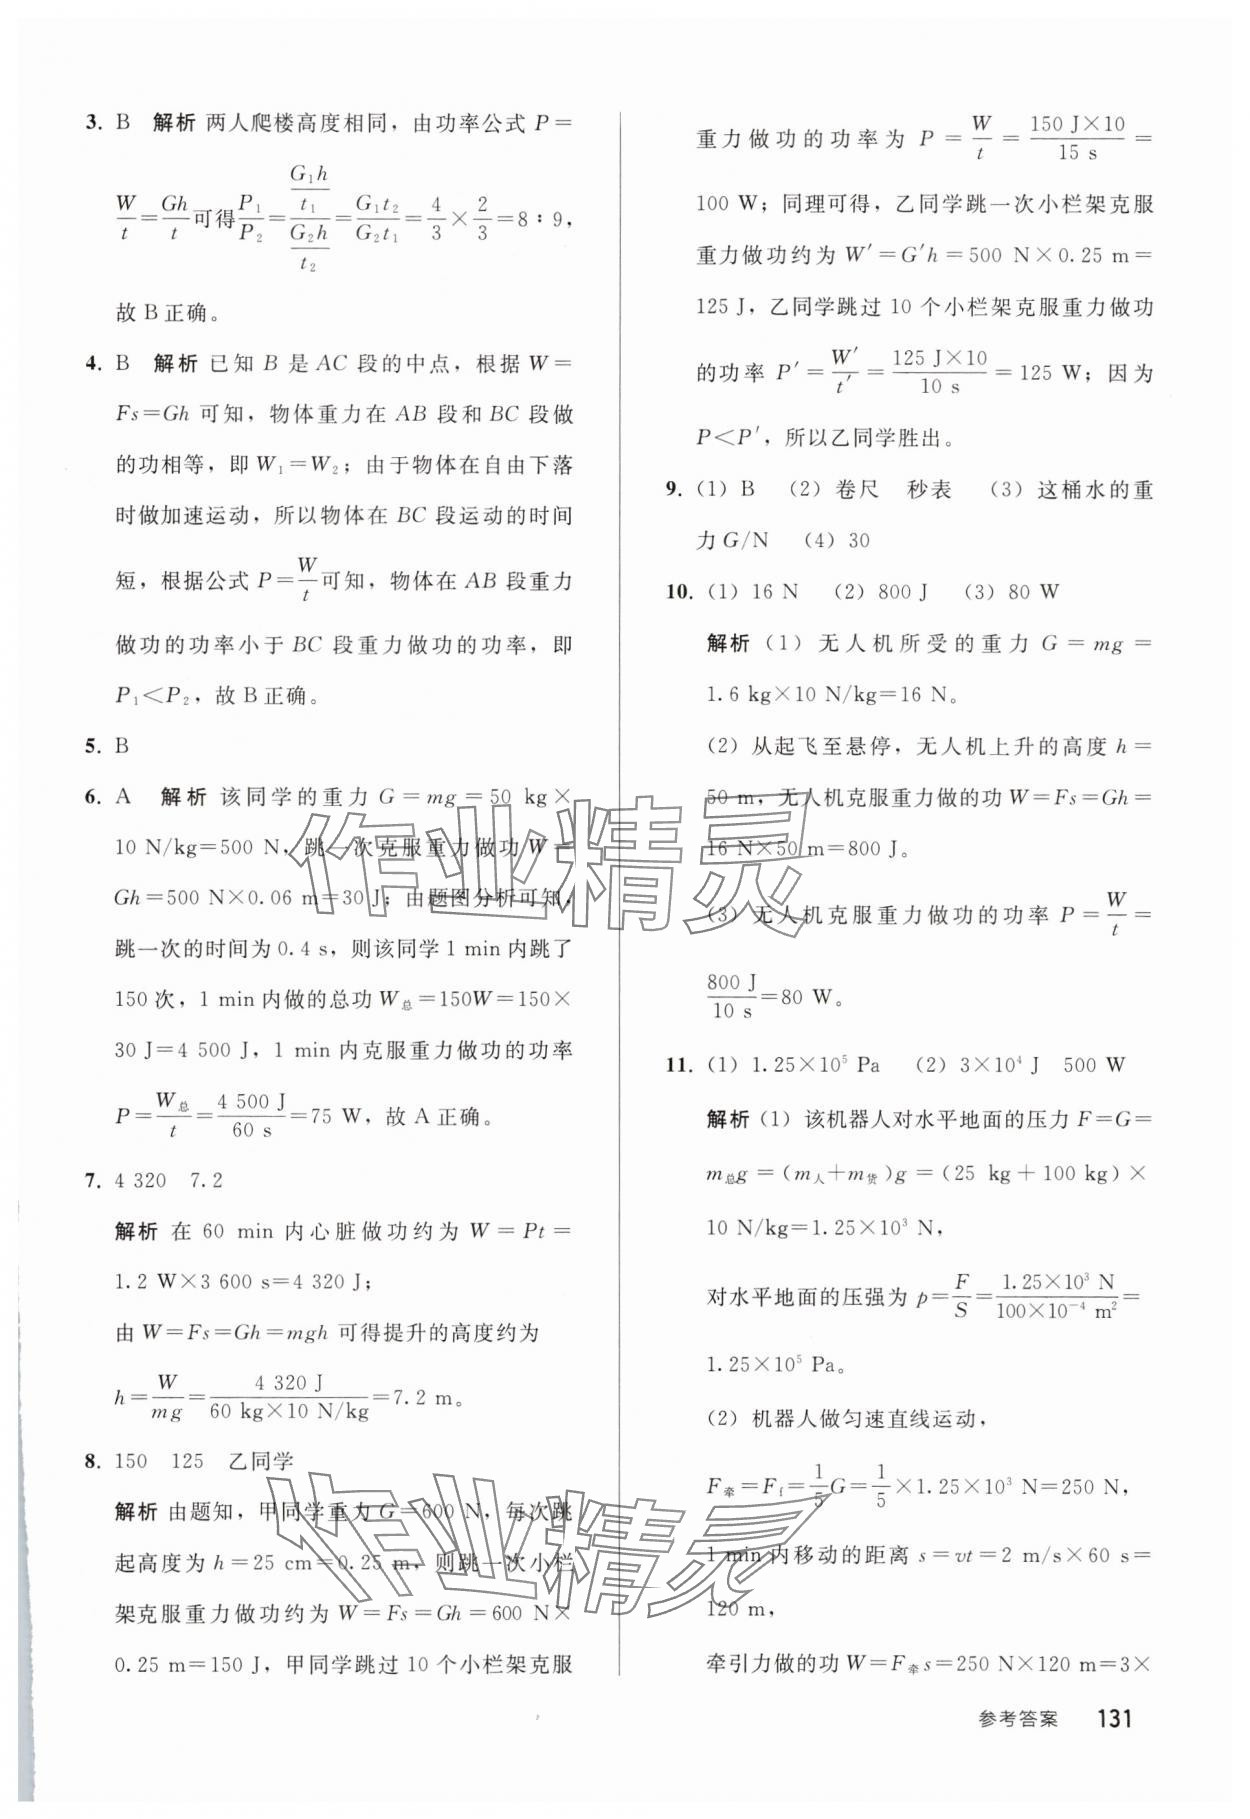 3. B 解析 两人爬楼高度相同，由功率公式 P=
W/t=Gh/t可得P₁/P₂=(G₁h/t₁)/(G₂h/t₂)=G₁t₂/G₂t₁=4/3×2/3=8∶9，
故 B 正确。
4. B 解析 已知 B 是 AC 段的中点，根据 W=
Fs=Gh 可知，物体重力在 AB 段和 BC 段做
的功相等，即 W₁=W₂；由于物体在自由下落
时做加速运动，所以物体在 BC 段运动的时间
短，根据公式 P=W/t可知，物体在 AB 段重力
做功的功率小于 BC 段重力做功的功率，即
P₁<P₂，故 B 正确。
5. B
6. A 解析 该同学的重力 G=mg=50 kg×
10 N/kg=500 N，跳一次克服重力做功 W=
Gh=500 N×0.06 m=30 J；由题图分析可知，
跳一次的时间为 0.4 s，则该同学 1 min 内跳了
150 次，1 min 内做的总功 W总=150W=150×
30 J=4 500 J，1 min 内克服重力做功的功率
P=W总/t=4 500 J/60 s=75 W，故 A 正确。
7. 4 320 7.2
解析 在 60 min 内心脏做功约为 W=Pt=
1.2 W×3 600 s=4 320 J；
由 W=Fs=Gh=mgh 可得提升的高度约为
h=W/mg=4 320 J/60 kg×10 N/kg=7.2 m。
8. 150 125 乙同学
解析 由题知，甲同学重力 G=600 N，每次跳
起高度为 h=25 cm=0.25 m，则跳一次小栏
架克服重力做功约为 W=Fs=Gh=600 N×
0.25 m=150 J，甲同学跳过 10 个小栏架克服
重力做功的功率为 P=W/t=150 J×10/15 s=
100 W；同理可得，乙同学跳一次小栏架克服
重力做功约为 W′=G′h=500 N×0.25 m=
125 J，乙同学跳过 10 个小栏架克服重力做功
的功率 P′=W′/t′=125 J×10/10 s=125 W；因为
P<P′，所以乙同学胜出。
9. (1) B (2) 卷尺 秒表 (3) 这桶水的重
力 G/N (4) 30
10. (1) 16 N (2) 800 J (3) 80 W
解析 (1) 无人机所受的重力 G=mg=
1.6 kg×10 N/kg=16 N。
(2) 从起飞至悬停，无人机上升的高度 h=
50 m，无人机克服重力做的功 W=Fs=Gh=
16 N×50 m=800 J。
(3) 无人机克服重力做功的功率 P=W/t=
800 J/10 s=80 W。
11. (1) 1.25×10⁵ Pa (2) 3×10⁴ J 500 W
解析 (1) 该机器人对水平地面的压力 F=G=
m总g=(m人+m货)g=(25 kg+100 kg)×
10 N/kg=1.25×10³ N，
对水平地面的压强为 p=F/S=1.25×10³ N/100×10⁻⁴ m²=
1.25×10⁵ Pa。
(2) 机器人做匀速直线运动，
F牵=Ff=1/5G=1/5×1.25×10³ N=250 N，
1 min 内移动的距离 s=vt=2 m/s×60 s=
120 m，
牵引力做的功 W=F牵s=250 N×120 m=3×
作业精灵
作业精灵
参考答案 131